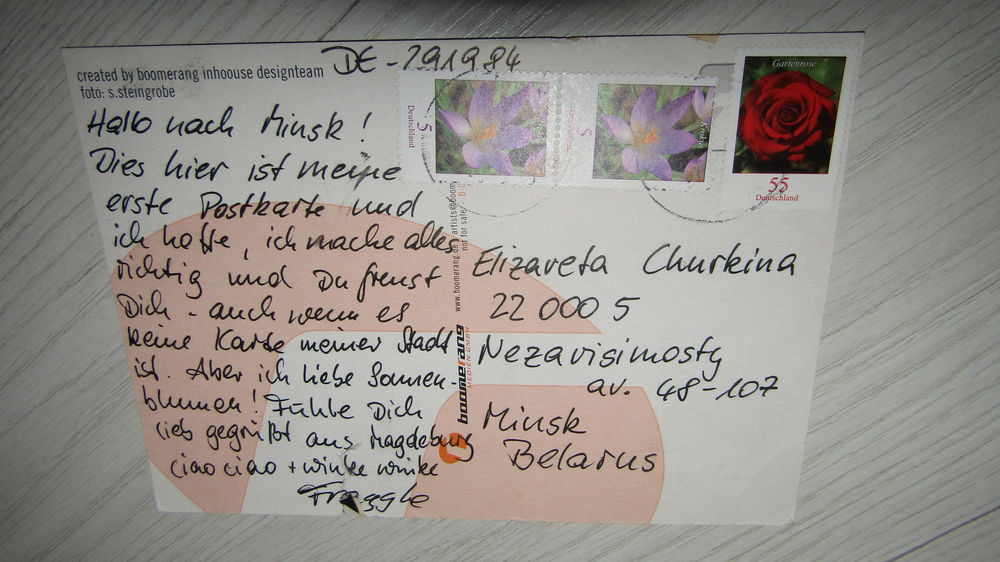 DE-291984
created by boomerang inhouse designteam
foto: s.steingrobe
Hallo nach Minsk!
Dies hier ist meine
erste Postkarte und
ich hoffe, ich mache alles
richtig und Du freust
Dich - auch wenn es
keine Karte meiner Stadt
ist. Aber ich liebe Sonnen-
blumen! Fühle Dich
lieb gegrüßt aus Magdeburg
ciao ciao + winke winke
Froggle
5
Deutschland
5
Deutschland
Krokus
Gartenrose
55
Deutschland
not for sale
boomerang
MEDIEN GMBH
Elizaveta Churkina
220005
Nezavisimosty
av. 48-107
Minsk
Belarus